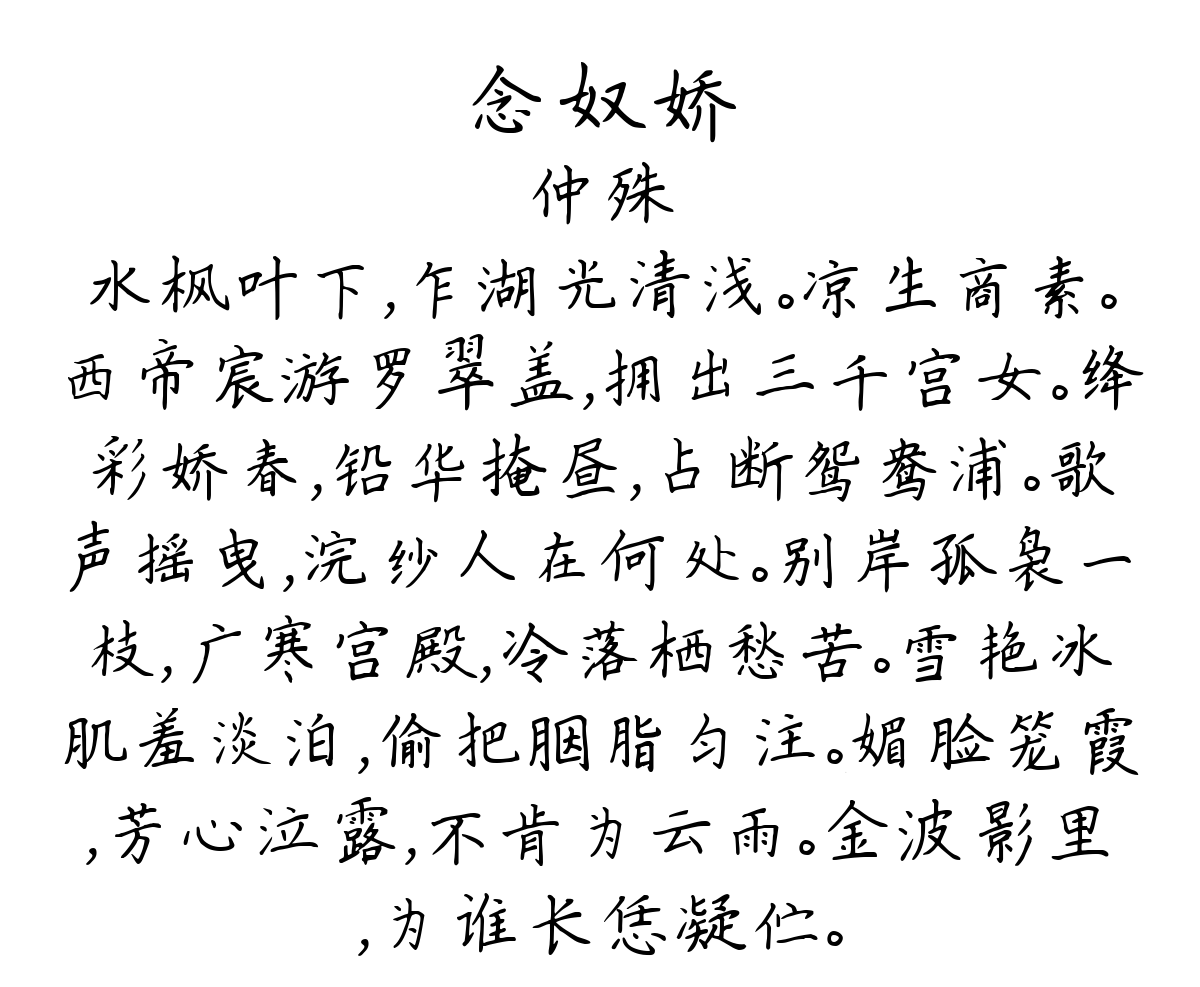 念奴娇
仲殊
水枫叶下,乍湖光清浅。凉生商素。
西帝宸游罗翠盖,拥出三千宫女。绛
彩娇春,铅华掩昼,占断鸳鸯浦。歌
声摇曳,浣纱人在何处。别岸孤袅一
枝,广寒宫殿,冷落栖愁苦。雪艳冰
肌羞淡泊,偷把胭脂匀注。媚脸笼霞
,芳心泣露,不肯为云雨。金波影里
,为谁长恁凝伫。